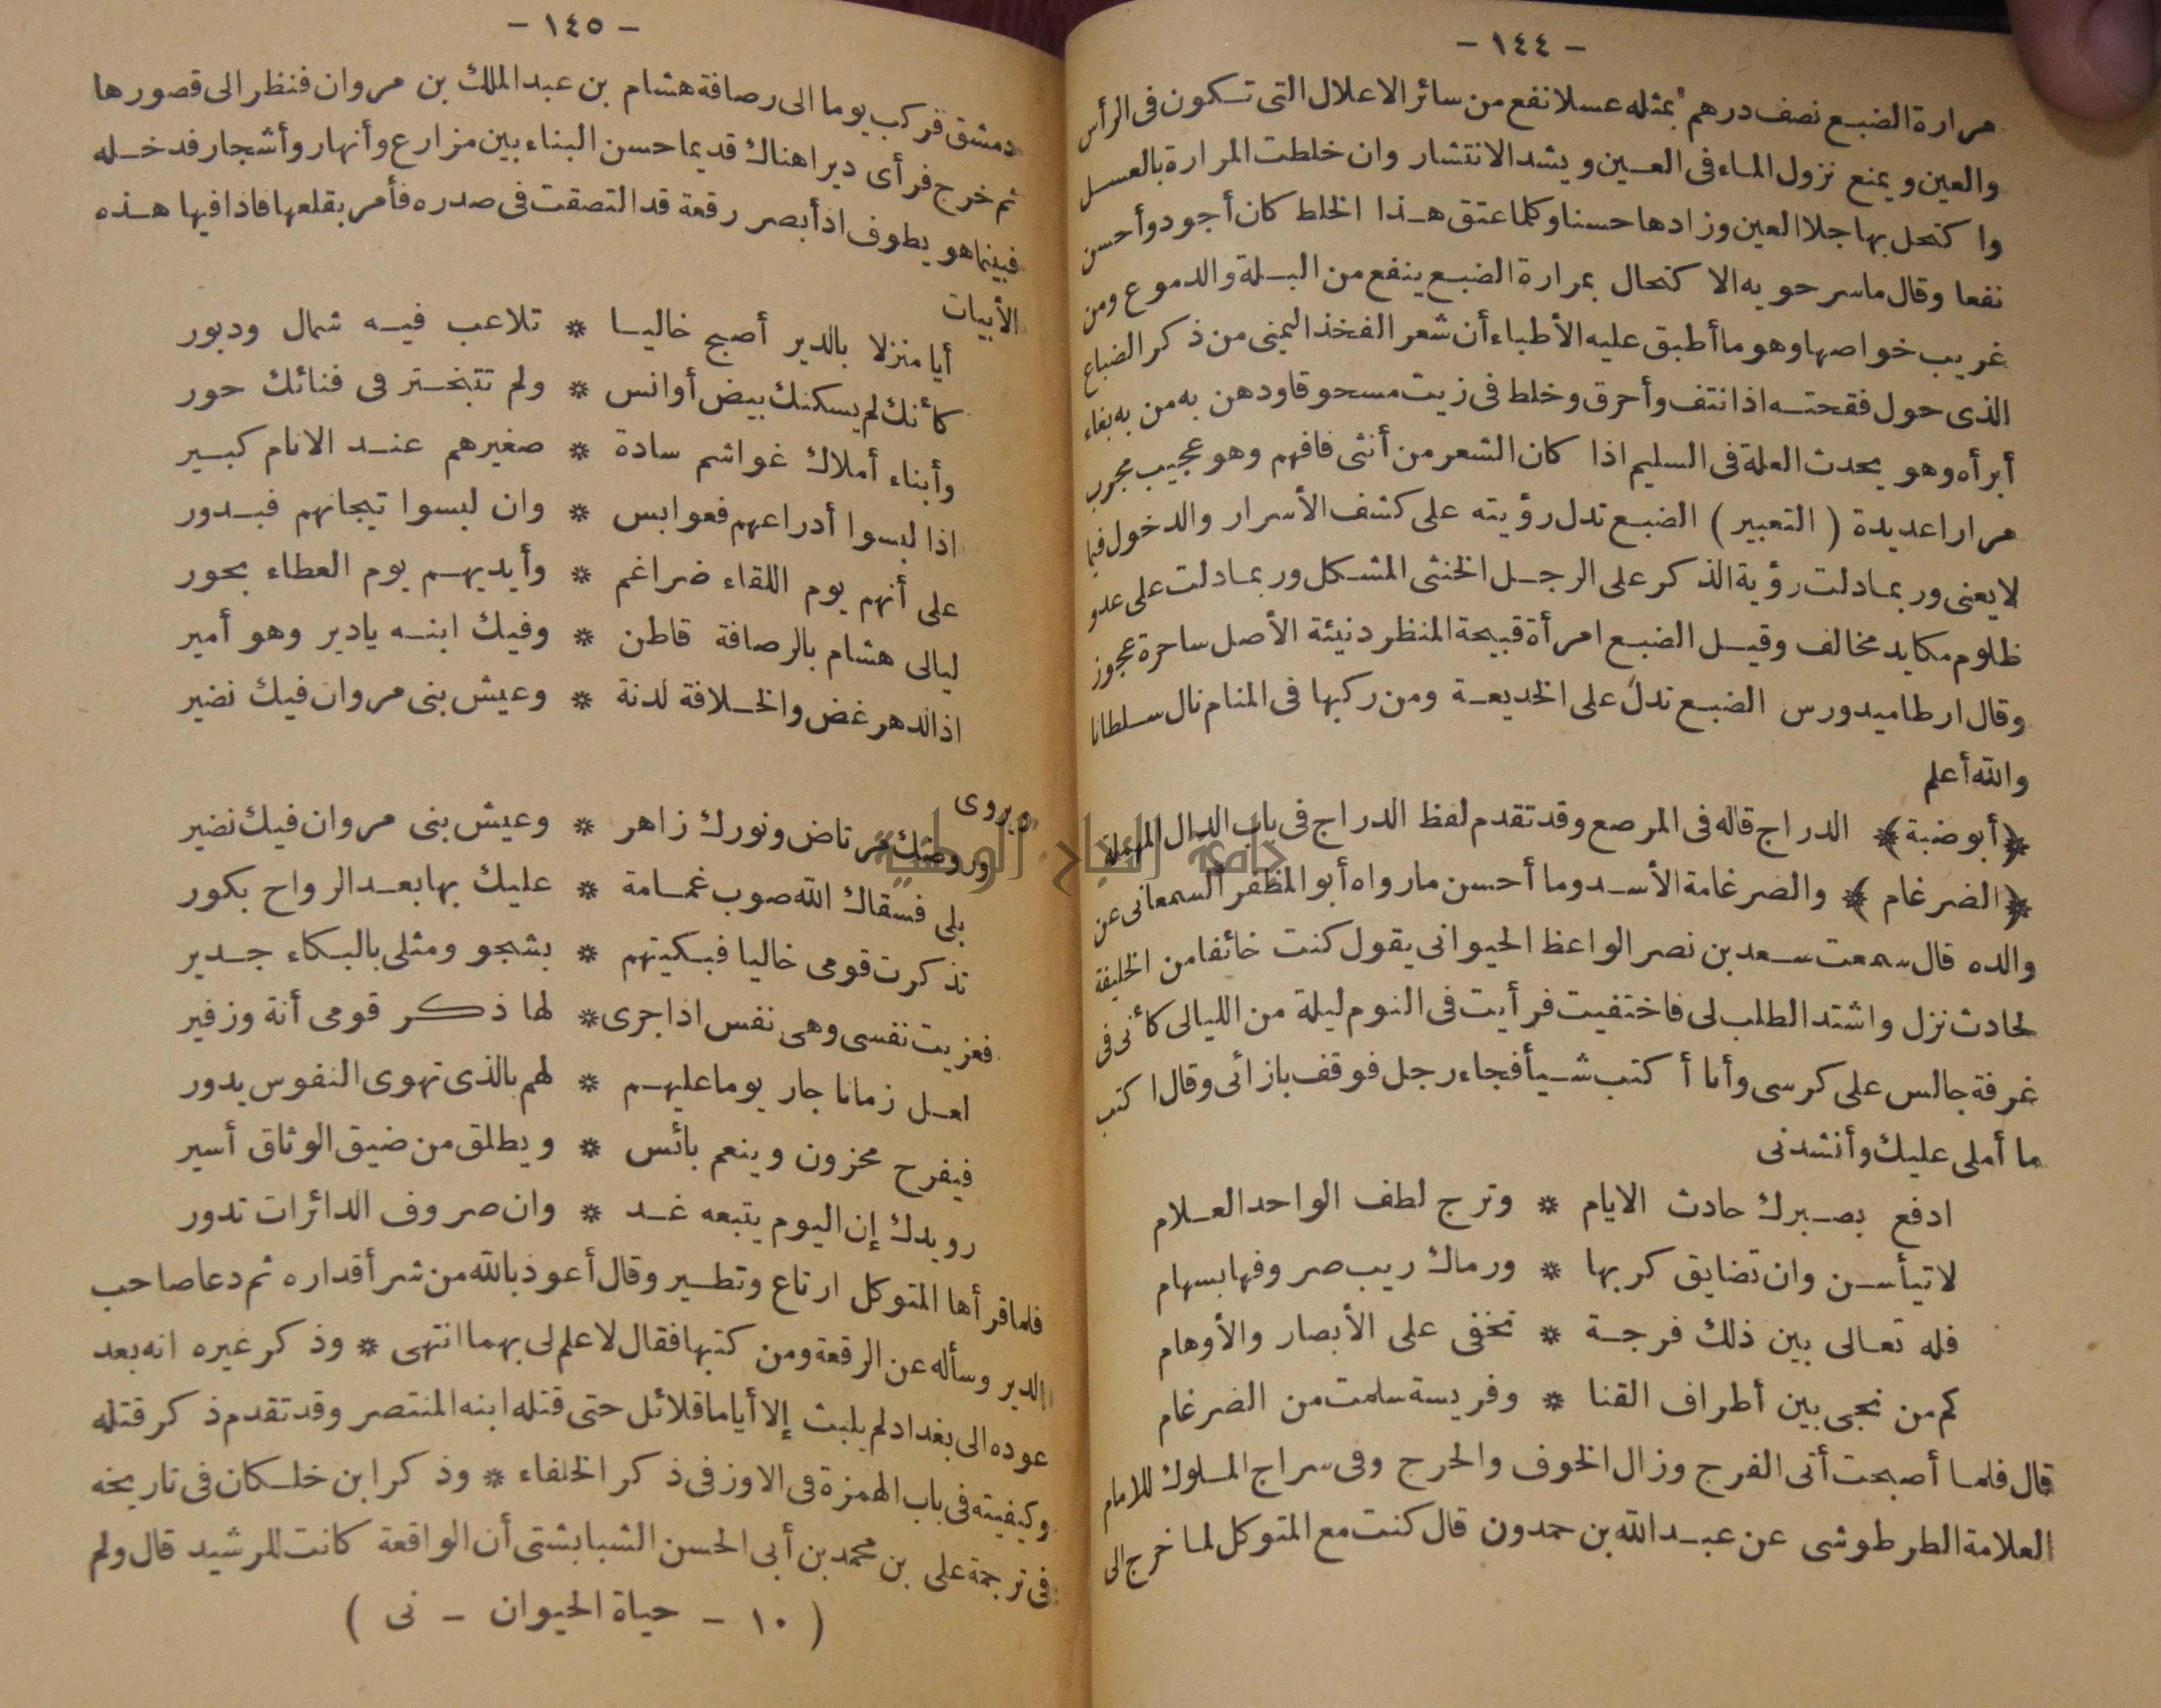 - ١٤٤ -
مرارة الضبع نصف درهم بمثله عسلا نفع من سائر الاعلال التى تكون فى الرأس
والعين ويمنع نزول الماء فى العين ويشد الانتشار وان خلطت المرارة بالعسل
واكتحل بها جلا العين وزادها حسنا وكلما عتق هذا الخلط كان أجود وأحسن
نفعا وقال ماسرحويه الاكتحال بمرارة الضبع ينفع من البلة والدموع ومن
غريب خواصها وهو ما أطبق عليه الأطباء أن شعر الفخذ اليمنى من ذكر الضباع
الذى حول فقحته اذا نتف وأحرق وخلط فى زيت مسحوقا ودهن به من به بغاء
أبرأه وهو يحدث العلة فى السليم اذا كان الشعر من أنثى فافهم وهو عجيب مجرب
مرارا عديدة ( التعبير ) الضبع تدل رؤيته على كشف الأسرار والدخول فيما
لا يعنى وربما دلت رؤية الذكر على الرجل الخنثى المشكل وربما دلت على عدو
ظلوم مكايد مخالف وقيل الضبع امرأة قبيحة المنظر دنيئة الأصل ساحرة عجوز
وقال ارطاميدورس الضبع تدل على الخديعة ومن ركبها فى المنام نال سلطانا
والله أعلم
﴿ أبوضبة ﴾ الدراج قاله فى المرصع وقد تقدم لفظ الدراج فى باب الدال المهملة
﴿ الضرغام ﴾ والضرغامة الأسد وما أحسن مارواه أبو المظفر السمعانى عن
والده قال سمعت سعد بن نصر الواعظ الحيوانى يقول كنت خائفا من الخليفة
لحادث نزل واشتد الطلب لى فاختفيت فرأيت فى النوم ليلة من الليالى كأنى فى
غرفة جالس على كرسى وأنا أكتب شيأ فجاء رجل فوقف بازائى وقال اكتب
ما أملى عليك وأنشدنى
ادفع بصبرك حادث الايام * وترج لطف الواحد العلام
لا تيأسن وان تضايق كربها * ورماك ريب صروفها بسهام
فله تعالى بين ذلك فرجة * تخفى على الأبصار والأوهام
كم من نجى بين أطراف القنا * وفريسة سلمت من الضرغام
قال فلما أصبحت أتى الفرج وزال الخوف والحرج وفى سراج الملوك للامام
العلامة الطرطوشى عن عبد الله بن حمدون قال كنت مع المتوكل لما خرج الى
- ١٤٥ -
دمشق فركب يوما الى رصافة هشام بن عبد الملك بن مروان فنظر الى قصورها
ثم خرج فرأى ديرا هناك قديما حسن البناء بين مزارع وأنهار وأشجار فدخله
فبينما هو يطوف اذ أبصر رقعة قد التصقت فى صدره فأمر بقلعها فاذا فيها هذه
الأبيات
أيا منزلا بالدير أصبح خاليا * تلاعب فيه شمال ودبور
كأنك لم يسكنك بيض أوانس * ولم تتبختر فى فنائك حور
وأبناء أملاك غواشم سادة * صغيرهم عند الانام كبير
اذا لبسوا أدراعهم فعوابس * وان لبسوا تيجانهم فبدور
على أنهم يوم اللقاء ضراغم * وأيديهم يوم العطاء بحور
ليالى هشام بالرصافة قاطن * وفيك ابنه يادير وهو أمير
اذ الدهر غض والخلافة لدنة * وعيش بنى مروان فيك نضير
ويروى
وروضك مرتاض ونورك زاهر * وعيش بنى مروان فيك نضير
بلى فسقاك الله صوب غمامة * عليك بها بعد الرواح بكور
تذكرت قومى خاليا فبكيتهم * بشجو ومثلى بالبكاء جدير
فعزيت نفسى وهى نفس اذا جرى * لها ذكر قومى أنة وزفير
لعل زمانا جار يوما عليهم * لهم بالذى تهوى النفوس يدور
فيفرح محزون وينعم بائس * ويطلق من ضيق الوثاق أسير
رويدك إن اليوم يتبعه غد * وان صروف الدائرات تدور
فلما قرأها المتوكل ارتاع وتطير وقال أعوذ بالله من شر أقداره ثم دعا صاحب
الدير وسأله عن الرقعة ومن كتبها فقال لا علم لى بهما انتهى * وذكر غيره انه بعد
عوده الى بغداد لم يلبث إلا أياما قلائل حتى قتله ابنه المنتصر وقد تقدم ذكر قتله
وكيفيته فى باب الهمزة فى الاوز فى ذكر الخلفاء * وذكر ابن خلكان فى تاريخه
فى ترجمة على بن محمد بن أبى الحسن الشبابشتى أن الواقعة كانت للرشيد قال ولم
( ١٠ - حياة الحيوان - نى )
جامعة النجاح الوطنية